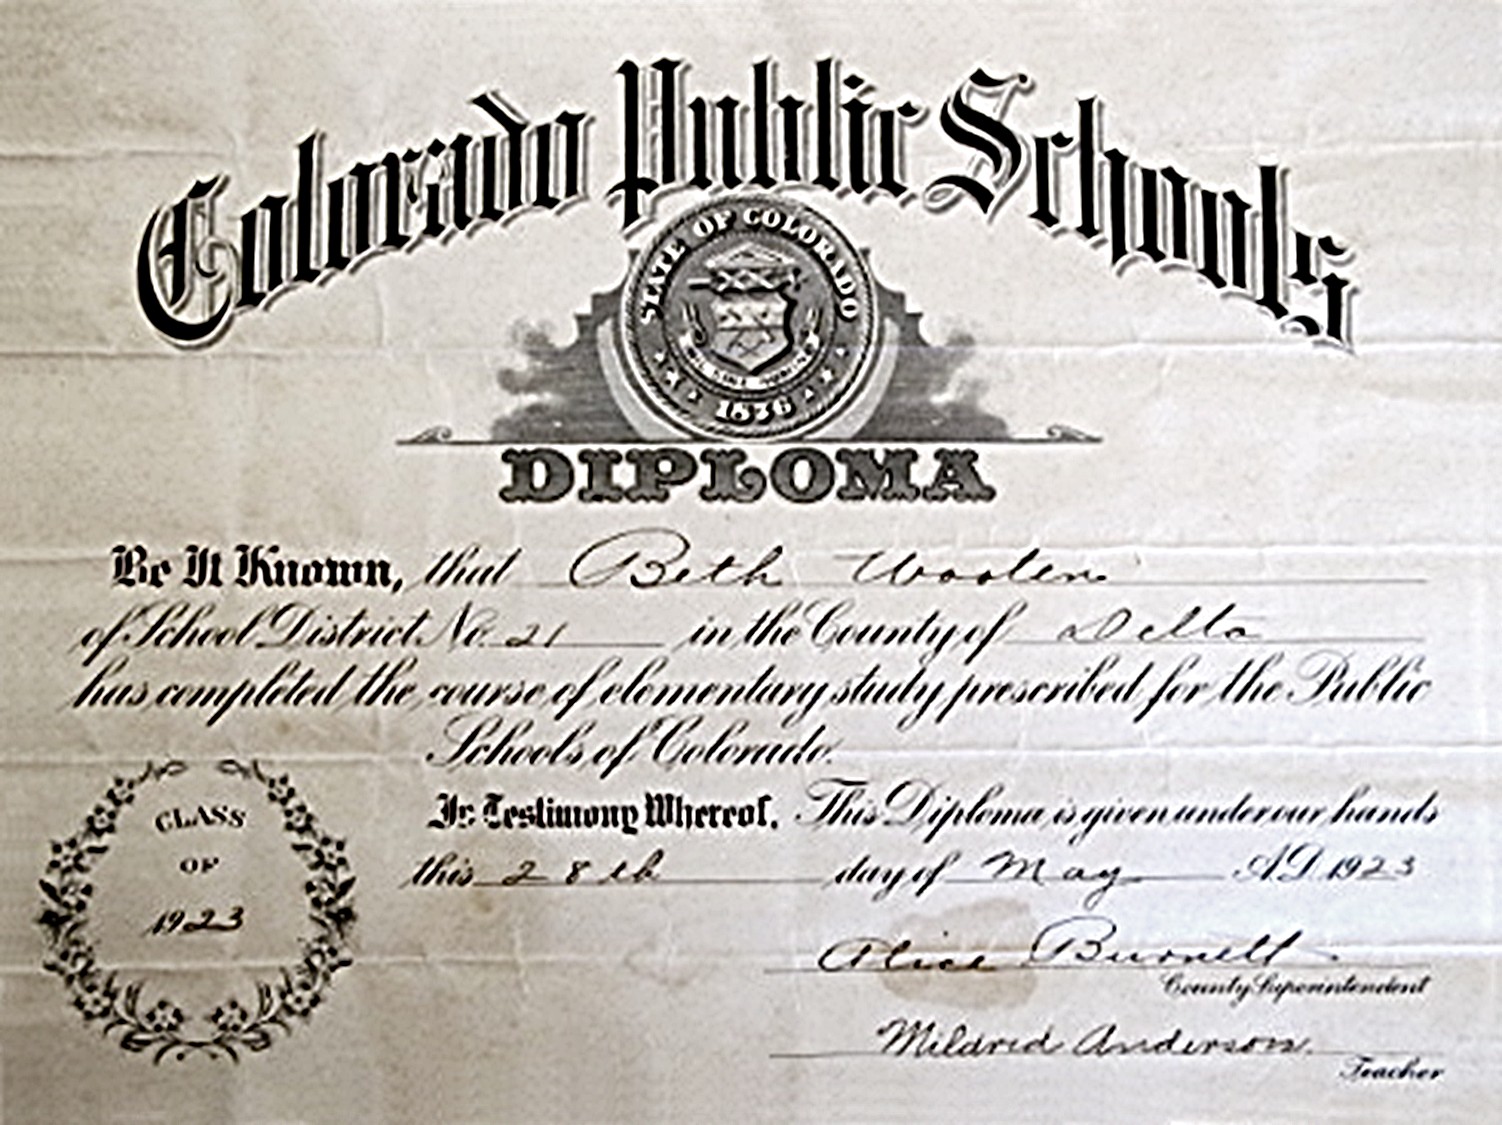 Colorado Public Schools
STATE OF COLORADO
1876
DIPLOMA
Be It Known, that Beth Wooten
of School District No. 21 in the County of Delta
has completed the course of elementary study prescribed for the Public
Schools of Colorado.
In Testimony Whereof, This Diploma is given under our hands
this 28th day of May A.D. 1923
CLASS
OF
1923
Alice Burnell
County Superintendent
Mildred Anderson
Teacher